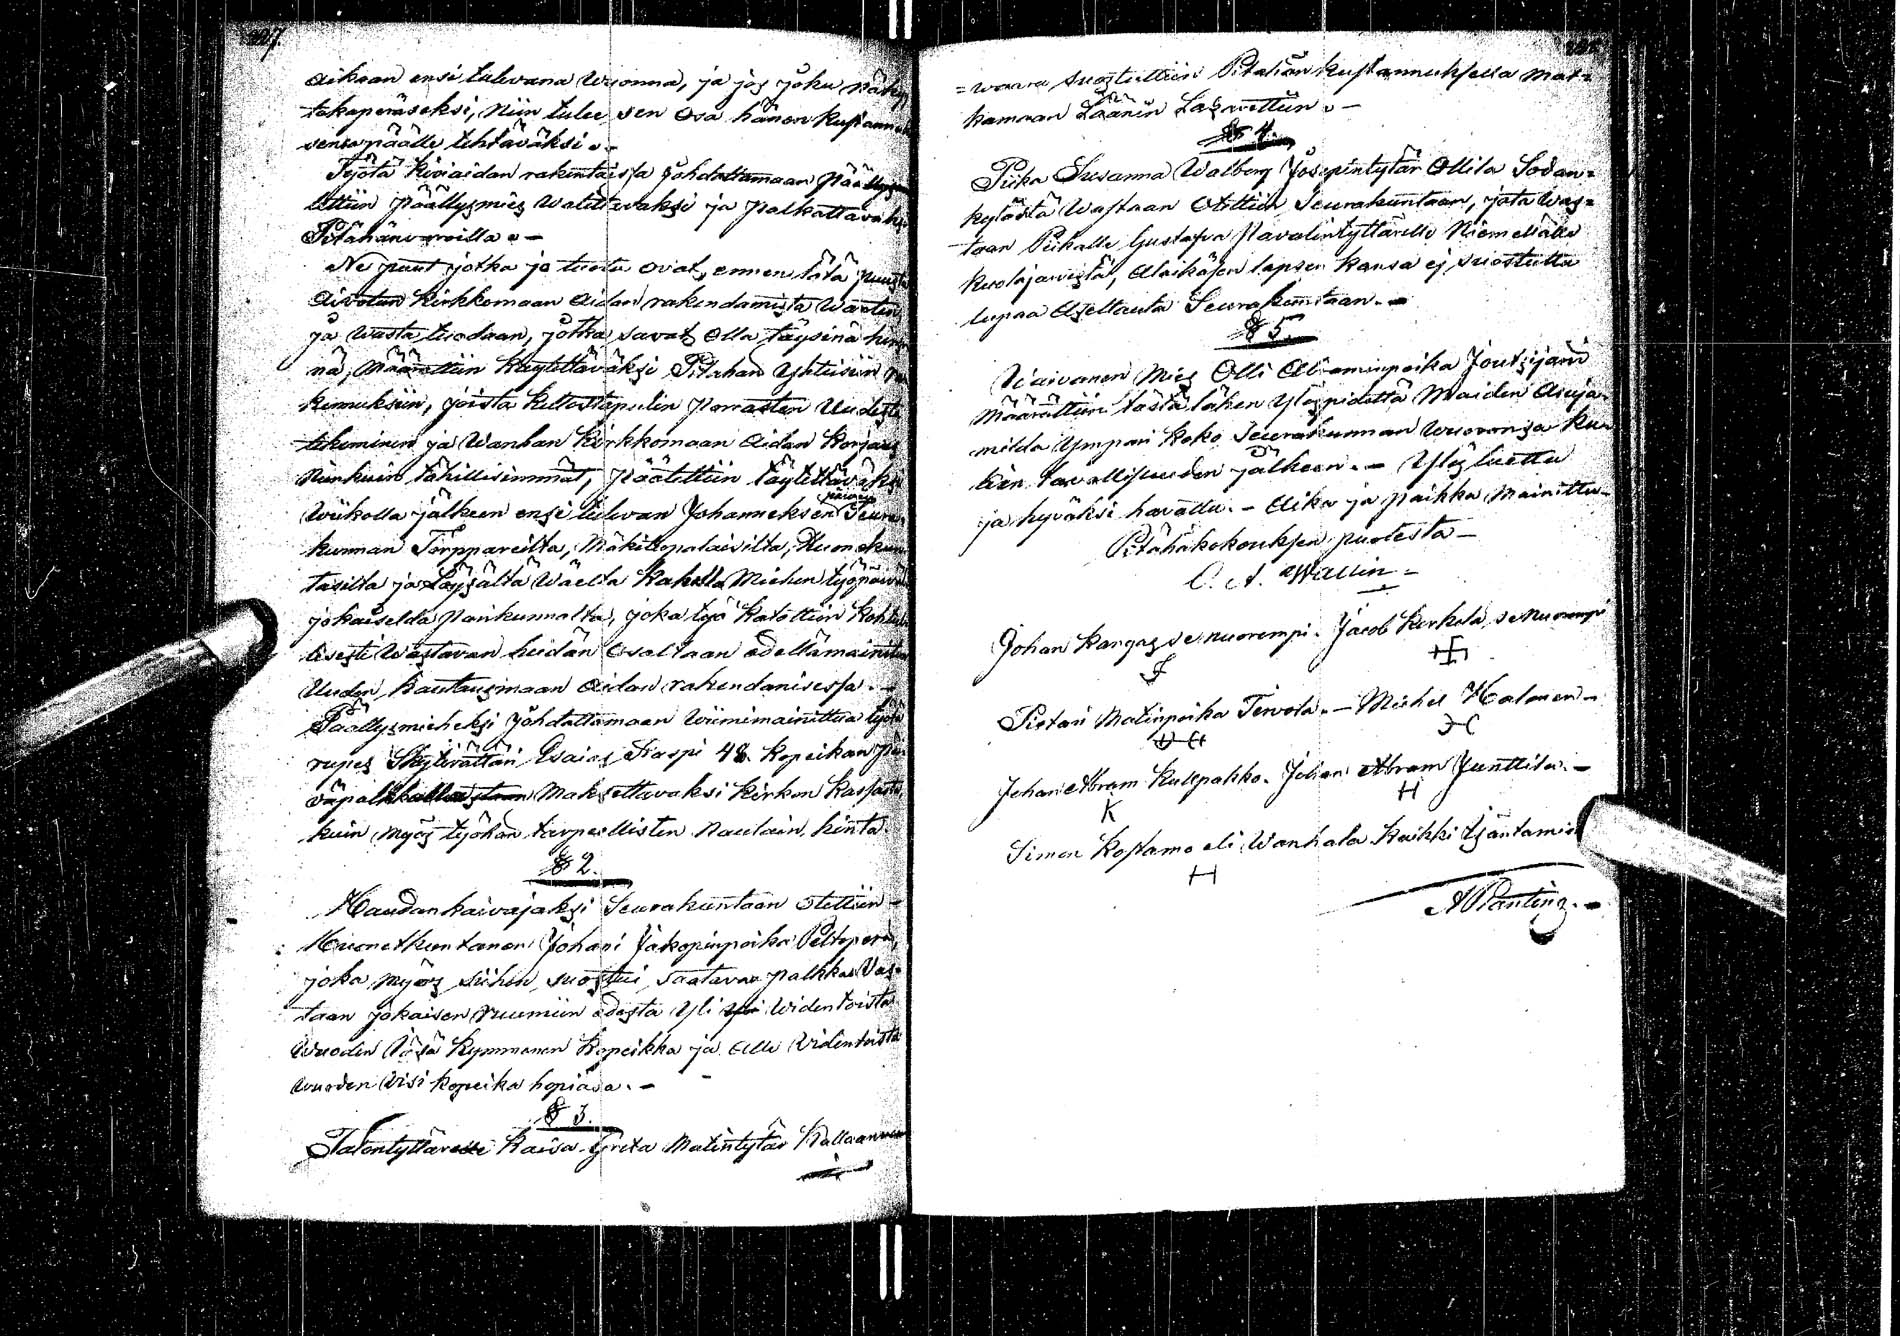 227.
aikaan ensi tulevana wuonna, ja jos joku näky
takaperäseksi, niin tulee sen osa hänen kustannuk
sensa päälle tehtäväksi. -
Työtä kiviaidan rakentaissa johdattamaan päällys
tettiin päällysmies walittavaksi ja palkattavaksi
Pitähänvaroilla. -
Ne puut jotka jo tuotu ovat, ennen tätä puusta
aivotun kirkkomaan aidan rakendamista warten
ja wasta tuodaan, jotka savat olla täysinä hin
nä, määrättiin käytettäväksi Pitähän yhteisiin ra
kennuksiin, joista kellostapulin porrasten uudesta
tekeminen ja wanhan kirkkomaan aidan korjaus
niinkuin tähillisimmät, päätettiin täytettäväksi
wiikolla jälkeen ensi tulevan Johanneksen päivän Seura-
kunnan Torppareilta, Mäkitupalaisilta, Huonekun
tasilta ja Löysältä Wäeltä kahella Miehen työpäivällä
jokaiselda pariskunnalta, joka työ katottiin kohtuul
lisesti wastavan heidän osaltaan edellämainitun
Uuden hautausmaan aidan rakendamisessa. -
Päällysmieheksi johdattamaan wiimimainittua työtä
rupes Skytivättäri Esaias Kaspi 48. kopeikan päi
väpalkkallastaan Maksettavaksi kirkon kassasta
kuin myös työhän tarpeellisten naulain hinta.
§ 2.
Haudankaivajaksi Seurakuntaan otettiin -
Huonetkuntanen Johani Jakopinpoika Peltoperä,
joka myös siihen suostui, saatavaa palkkaa Vas-
taan jokaisen ruumiin edesta yli yli widentoista
wuoden Väsä kymmenen kopeikka ja alle widentoista
wuoden Visi kopeika hopiasa. -
§ 3.
Talontyttärelle Kaisa Greta Matintytär Kallaanwaa
= waara suostuttiin Pitähän kustannuksella mat=
kamaan Läänin Lasarettiin. -
§ 4.
Piika Susanna Walborg Josepintytär Ollila Sodan=
kylästä Wastaan Otettiin Seurakuntaan, jota was=
taan Piikalle Gustafva Pavalintyttärelle Niemelälle
Kuolajarvestä, Alaikäsen lapsen kansa ej suostuttu
lupaa Asettauta Seurakuntaan. -
§ 5.
Vaivanen Mies Olli Abraminpoika Joutsijarvi
määrättiin tästä lähen ylöspidettä Maiden Asuja-
milda ympäri koko Seurakunnan wuoronsa ku
tavallisuuden jälkeen. - Ylösluettu
ja hyväksi havattu. - Aika ja paikka mainittu-
Pitähäkokouksen puolesta -
C. A. Wallin -
Johan Kangas se nuorempi. Jacob Kerkelä, se nuorempi
Pietari Matinpoika Tervola. - Michel Halonen -
Johan Abram Kullpakko. Johan Abram Junttila. -
K H
Simon Kostamo eli Wanhala kaikki Isäntamie
H
A Planting. -